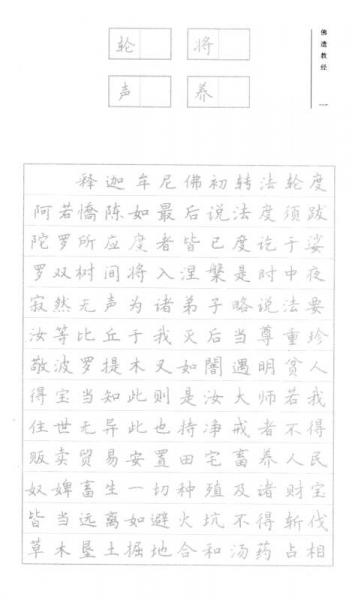 佛遗教经 一
轮 将
声 养
释迦牟尼佛初转法轮度
阿若憍陈如最后说法度须跋
陀罗所应度者皆已度讫于娑
罗双树间将入涅槃是时中夜
寂然无声为诸弟子略说法要
汝等比丘于我灭后当尊重珍
敬波罗提木叉如闇遇明贫人
得宝当知此则是汝大师若我
住世无异此也持净戒者不得
贩卖贸易安置田宅畜养人民
奴婢畜生一切种殖及诸财宝
皆当远离如避火坑不得斩伐
草木垦土掘地合和汤药占相